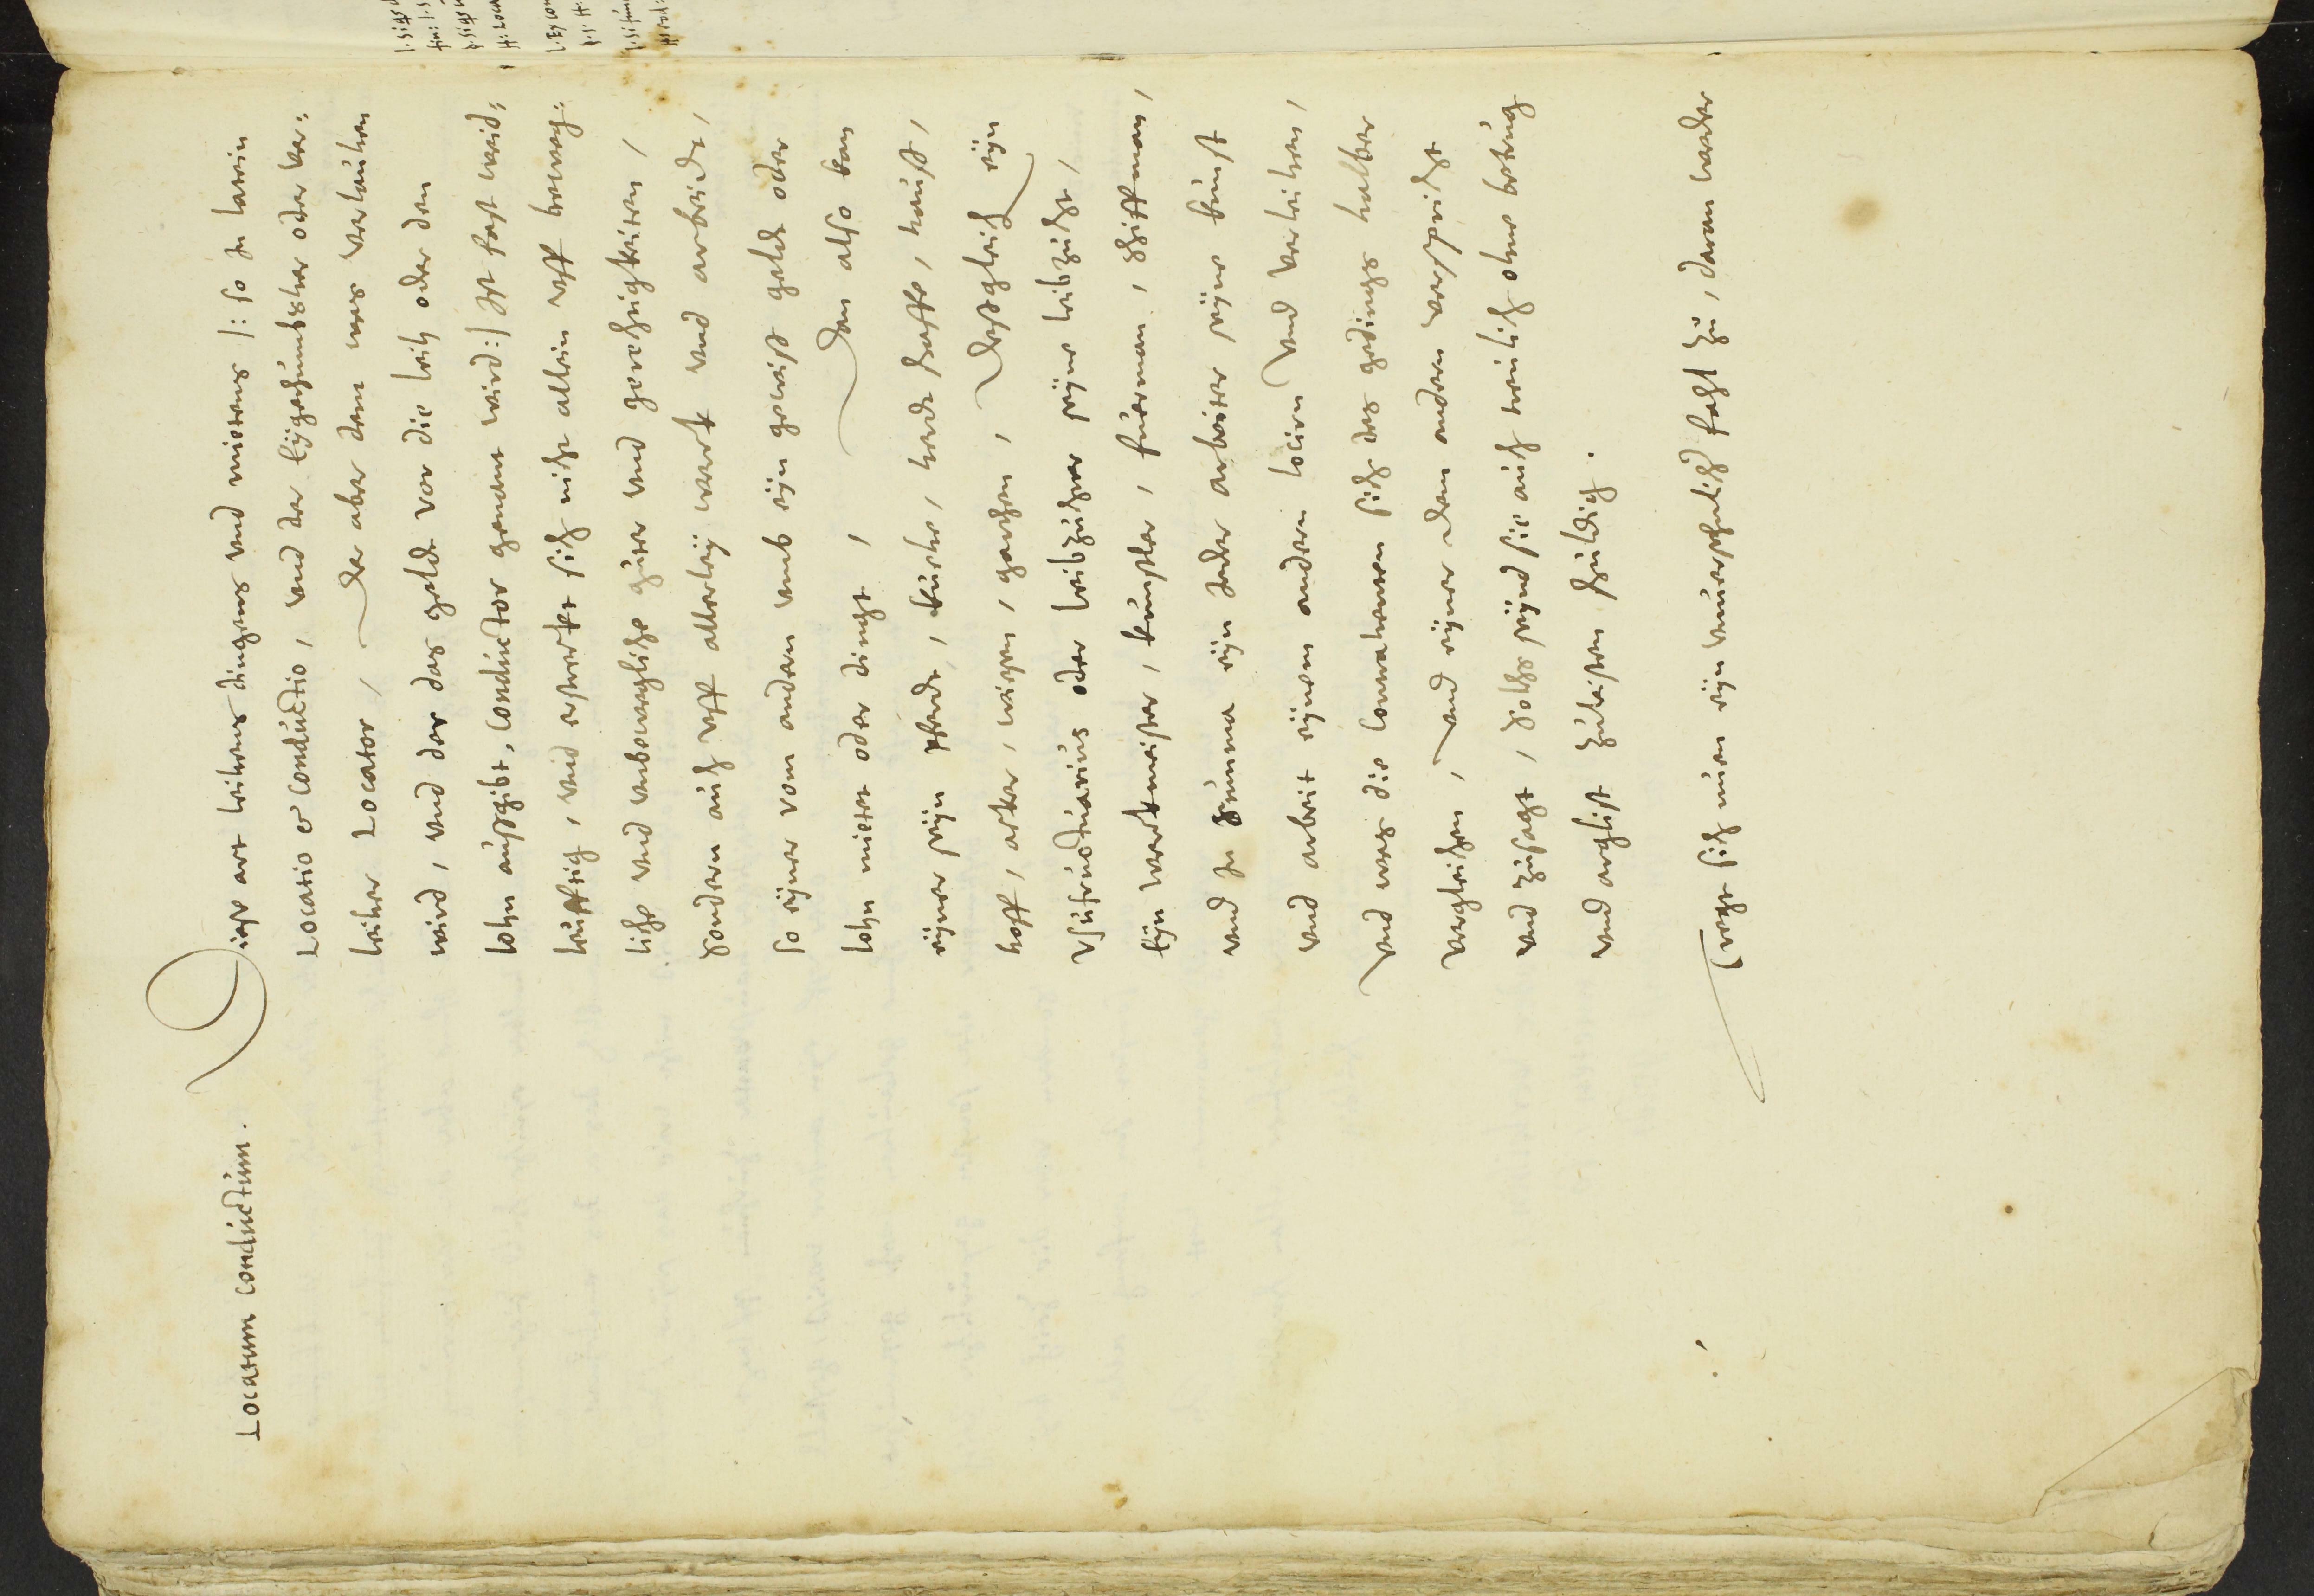 Locatum conductum.
Diese art leihens dingens und mietens /: so zu latein
Locatio & Conductio, und der eÿgethumbsher oder ver=
leiher Locator, der aber dem waß verleuhen
wird, und der das geldt vor die leih oder den
lohn außgibt, Conductor genant wird :/ ist fast weid=
leufftig, und erstreckt sich nicht allein uff beweg=
liche und unbewegliche güter und gerechtigkeiten,
sondern auch uff allerleÿ werk und arbeidt,
so eÿner vom andern umb eÿn gewiß geldt oder
lohn mietet oder dingt, dan also kan
eÿner seÿn pferdt, kuehe, herdt schaffe, hauß,
hoff, acker, wiesen, garthen, deßgleich eÿn
Usufructuarius oder leibzüchter seÿne leibzucht,
eÿn werckmeister, kunstler, fuerman, schiffman,
und in summa eÿn jeder arbeiter seÿne kunst
und arbeit eÿnem andern lociren und verleihen,
und was die Contrahenten sich des gedings halber
vergleichen, und eÿner dem andern verspricht
und zusagt, solchs seÿnd sie auch treulich ohne betrug
und arglist zuleisten schuldig.
Tregt sich nuen eÿn unuersehnlich fahl zu, daran weder